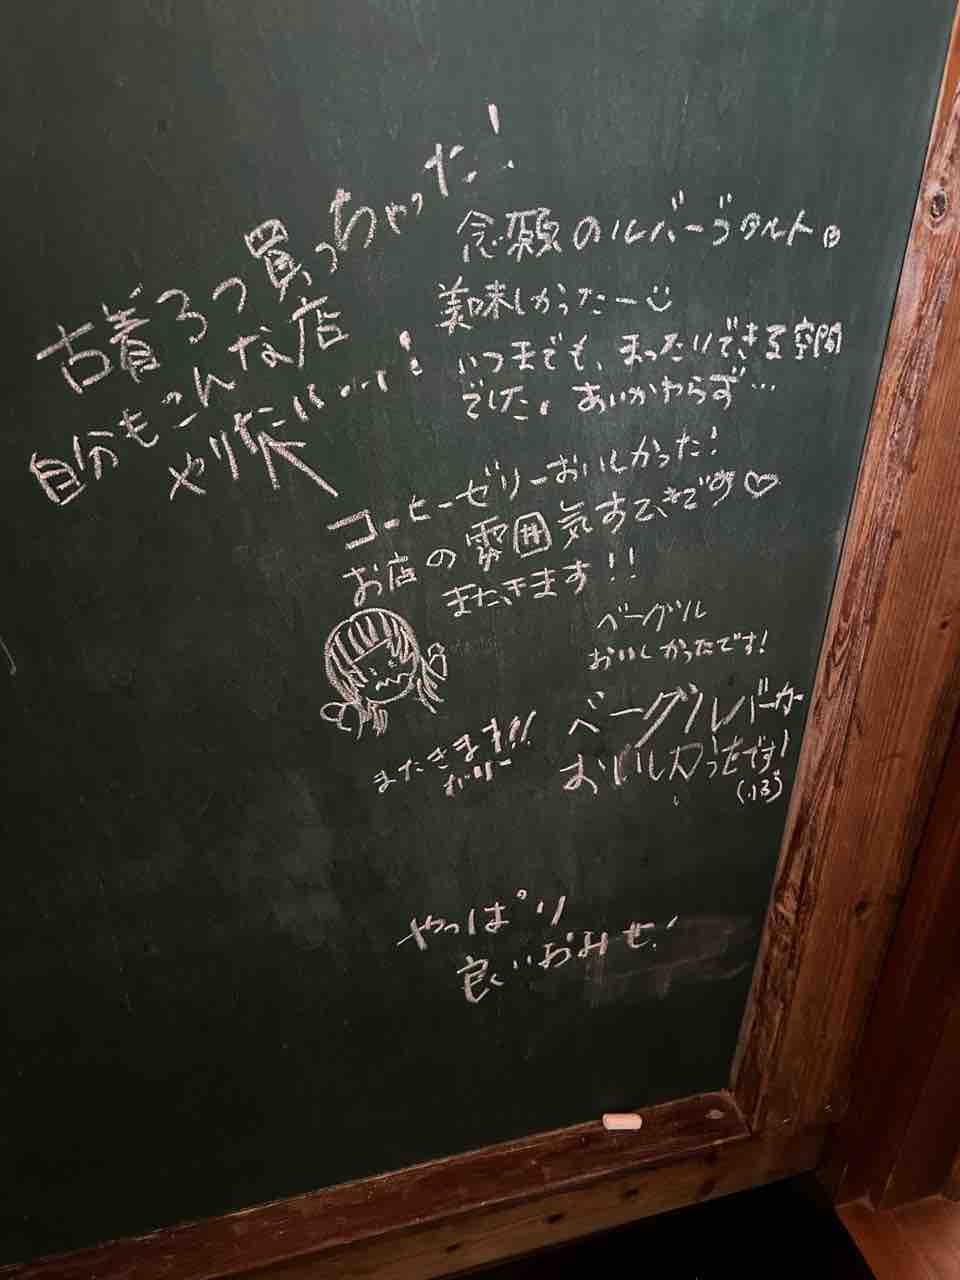 古着3つ買っちゃった!
自分もこんな店
やり
念願のルバーブタルト
美味しかったー
いつまでも、まったりできる空間
でした。あいかわらず…
コーヒーゼリーおいしかった!
お店の雰囲気すてきです♡
また、きます!!
ベーグル
おいしかったです!
ベーグルバーガー
おいしかったです!
またきます!!
やっぱり
良いおみせ!